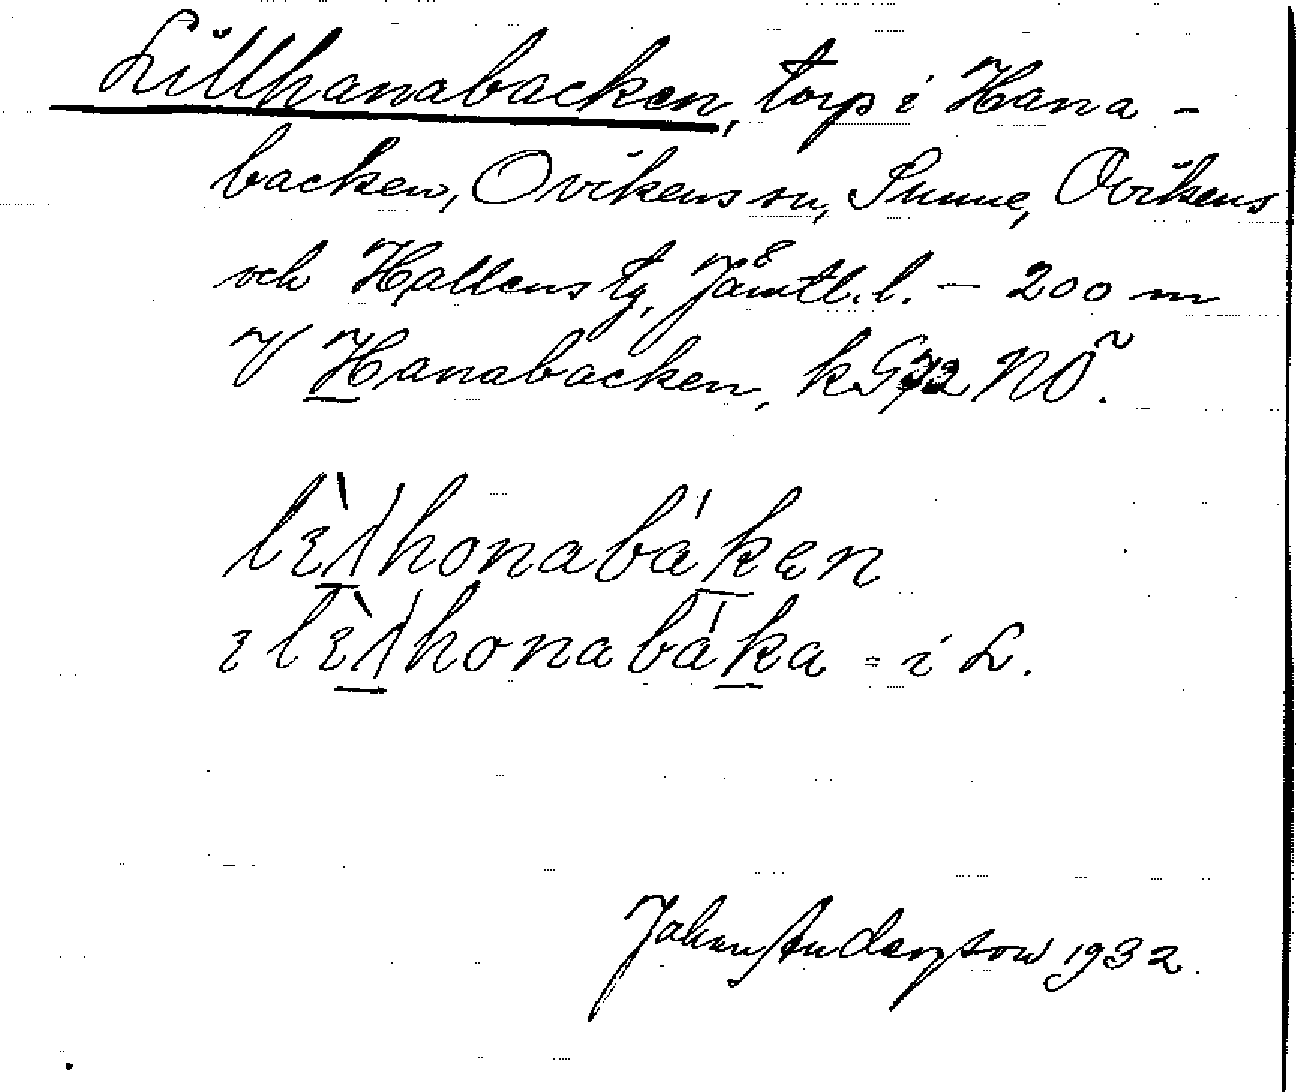 Lillhanabacken, torp i Hana-
backen, Ovikens sn, Sunne, Ovikens
och Hallens tg, Jämtl. l. – 200 m
V Hanabacken, k G 72 NÖ.
honabákęn
honabáka = i L.
Johan Anderzson 1932.